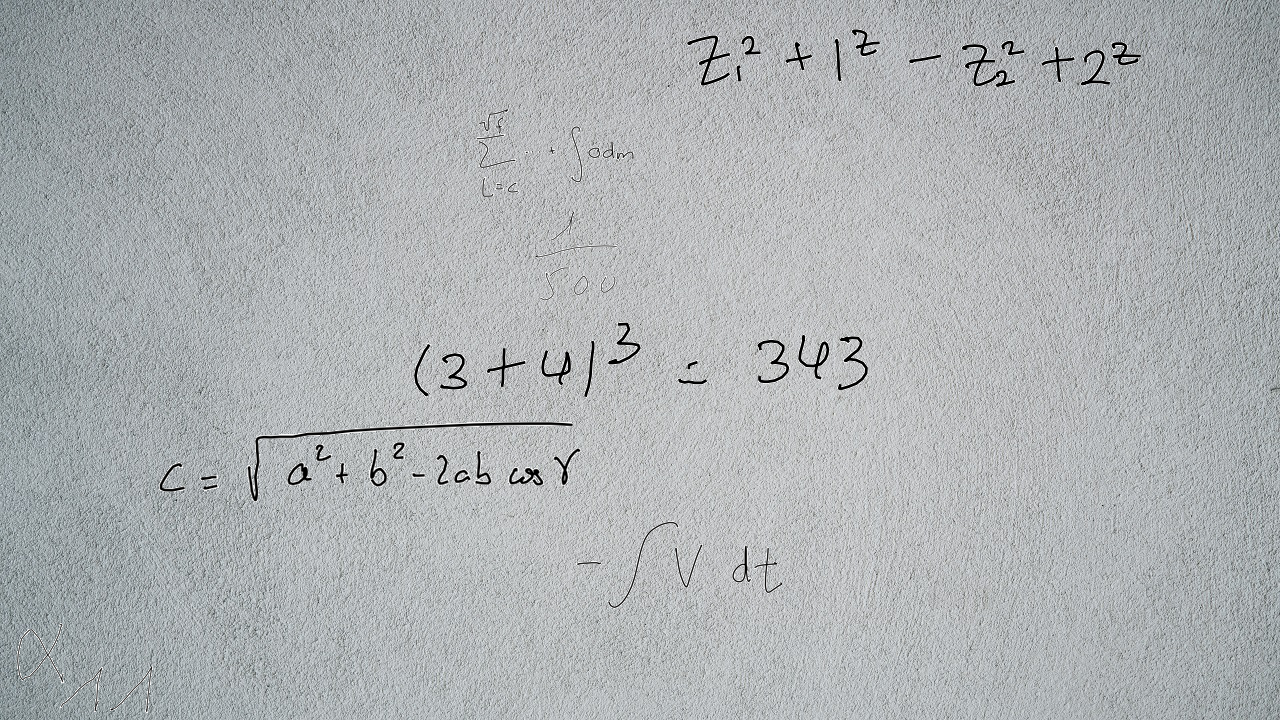 z₁² + 1ᶻ - z₂² + 2ᶻ
\sum_{i=c}^{\sqrt{f}} . + ∫ 0dm
1/500
(3+4)³ = 343
c = √(a² + b² - 2ab cos γ)
- ∫ V dt
α₁₁